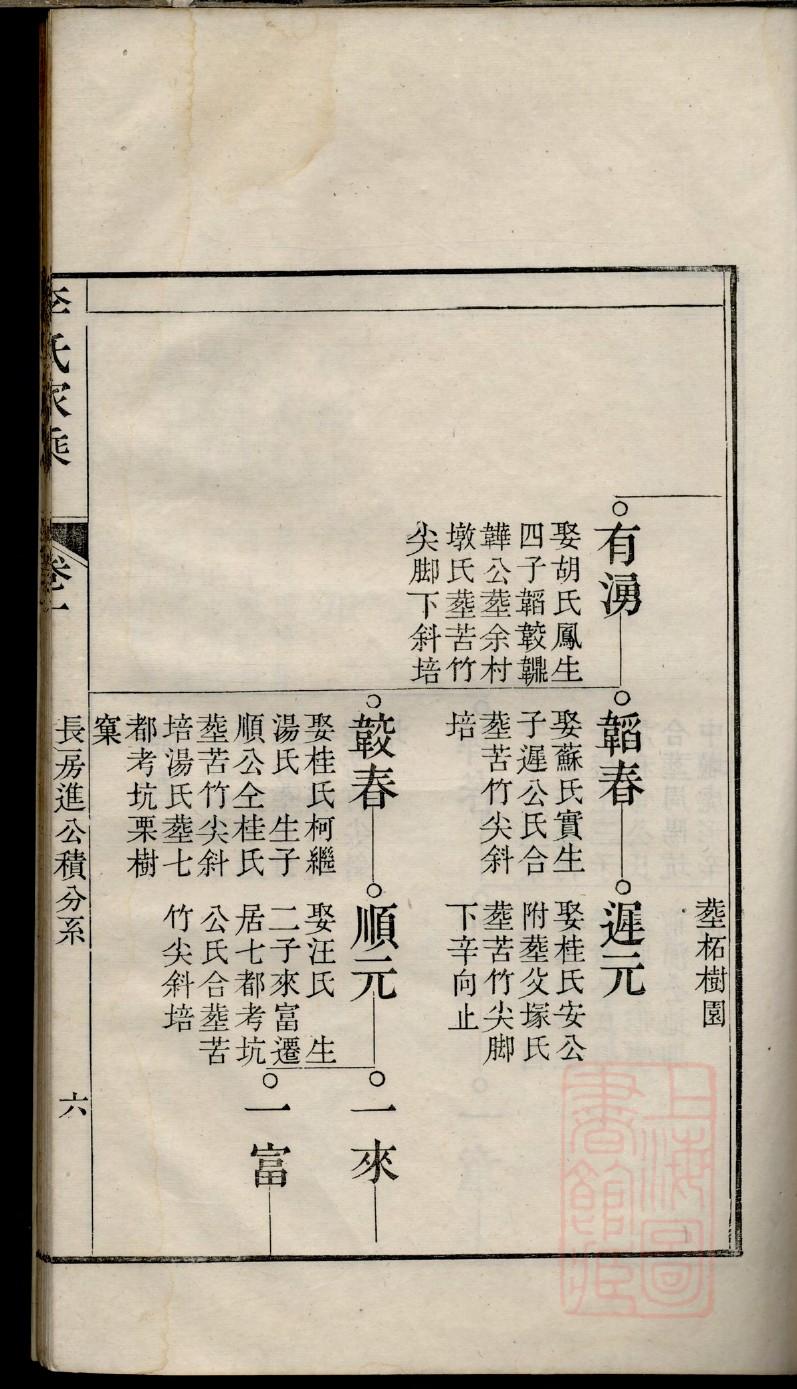 葬柘樹園
有湧
娶胡氏鳳生
四子韜䪗韡
韡公葬余村
墩氏葬苦竹
尖脚下斜培
韜春
娶蘇氏實生
子遲公氏合
葬苦竹尖斜
培
遲元
娶桂氏安公
附葬父塚氏
葬苦竹尖脚
下辛向止
䪗春
娶桂氏柯繼
湯氏 生子
順公仝桂氏
葬苦竹尖斜
培湯氏葬七
都考坑栗樹
窠
順元
娶汪氏 生
二子來富遷
居七都考坑
公氏合葬苦
竹尖斜培
一來
一富
李氏家乘
卷一
長房進公積分系
六
上海圖書館藏